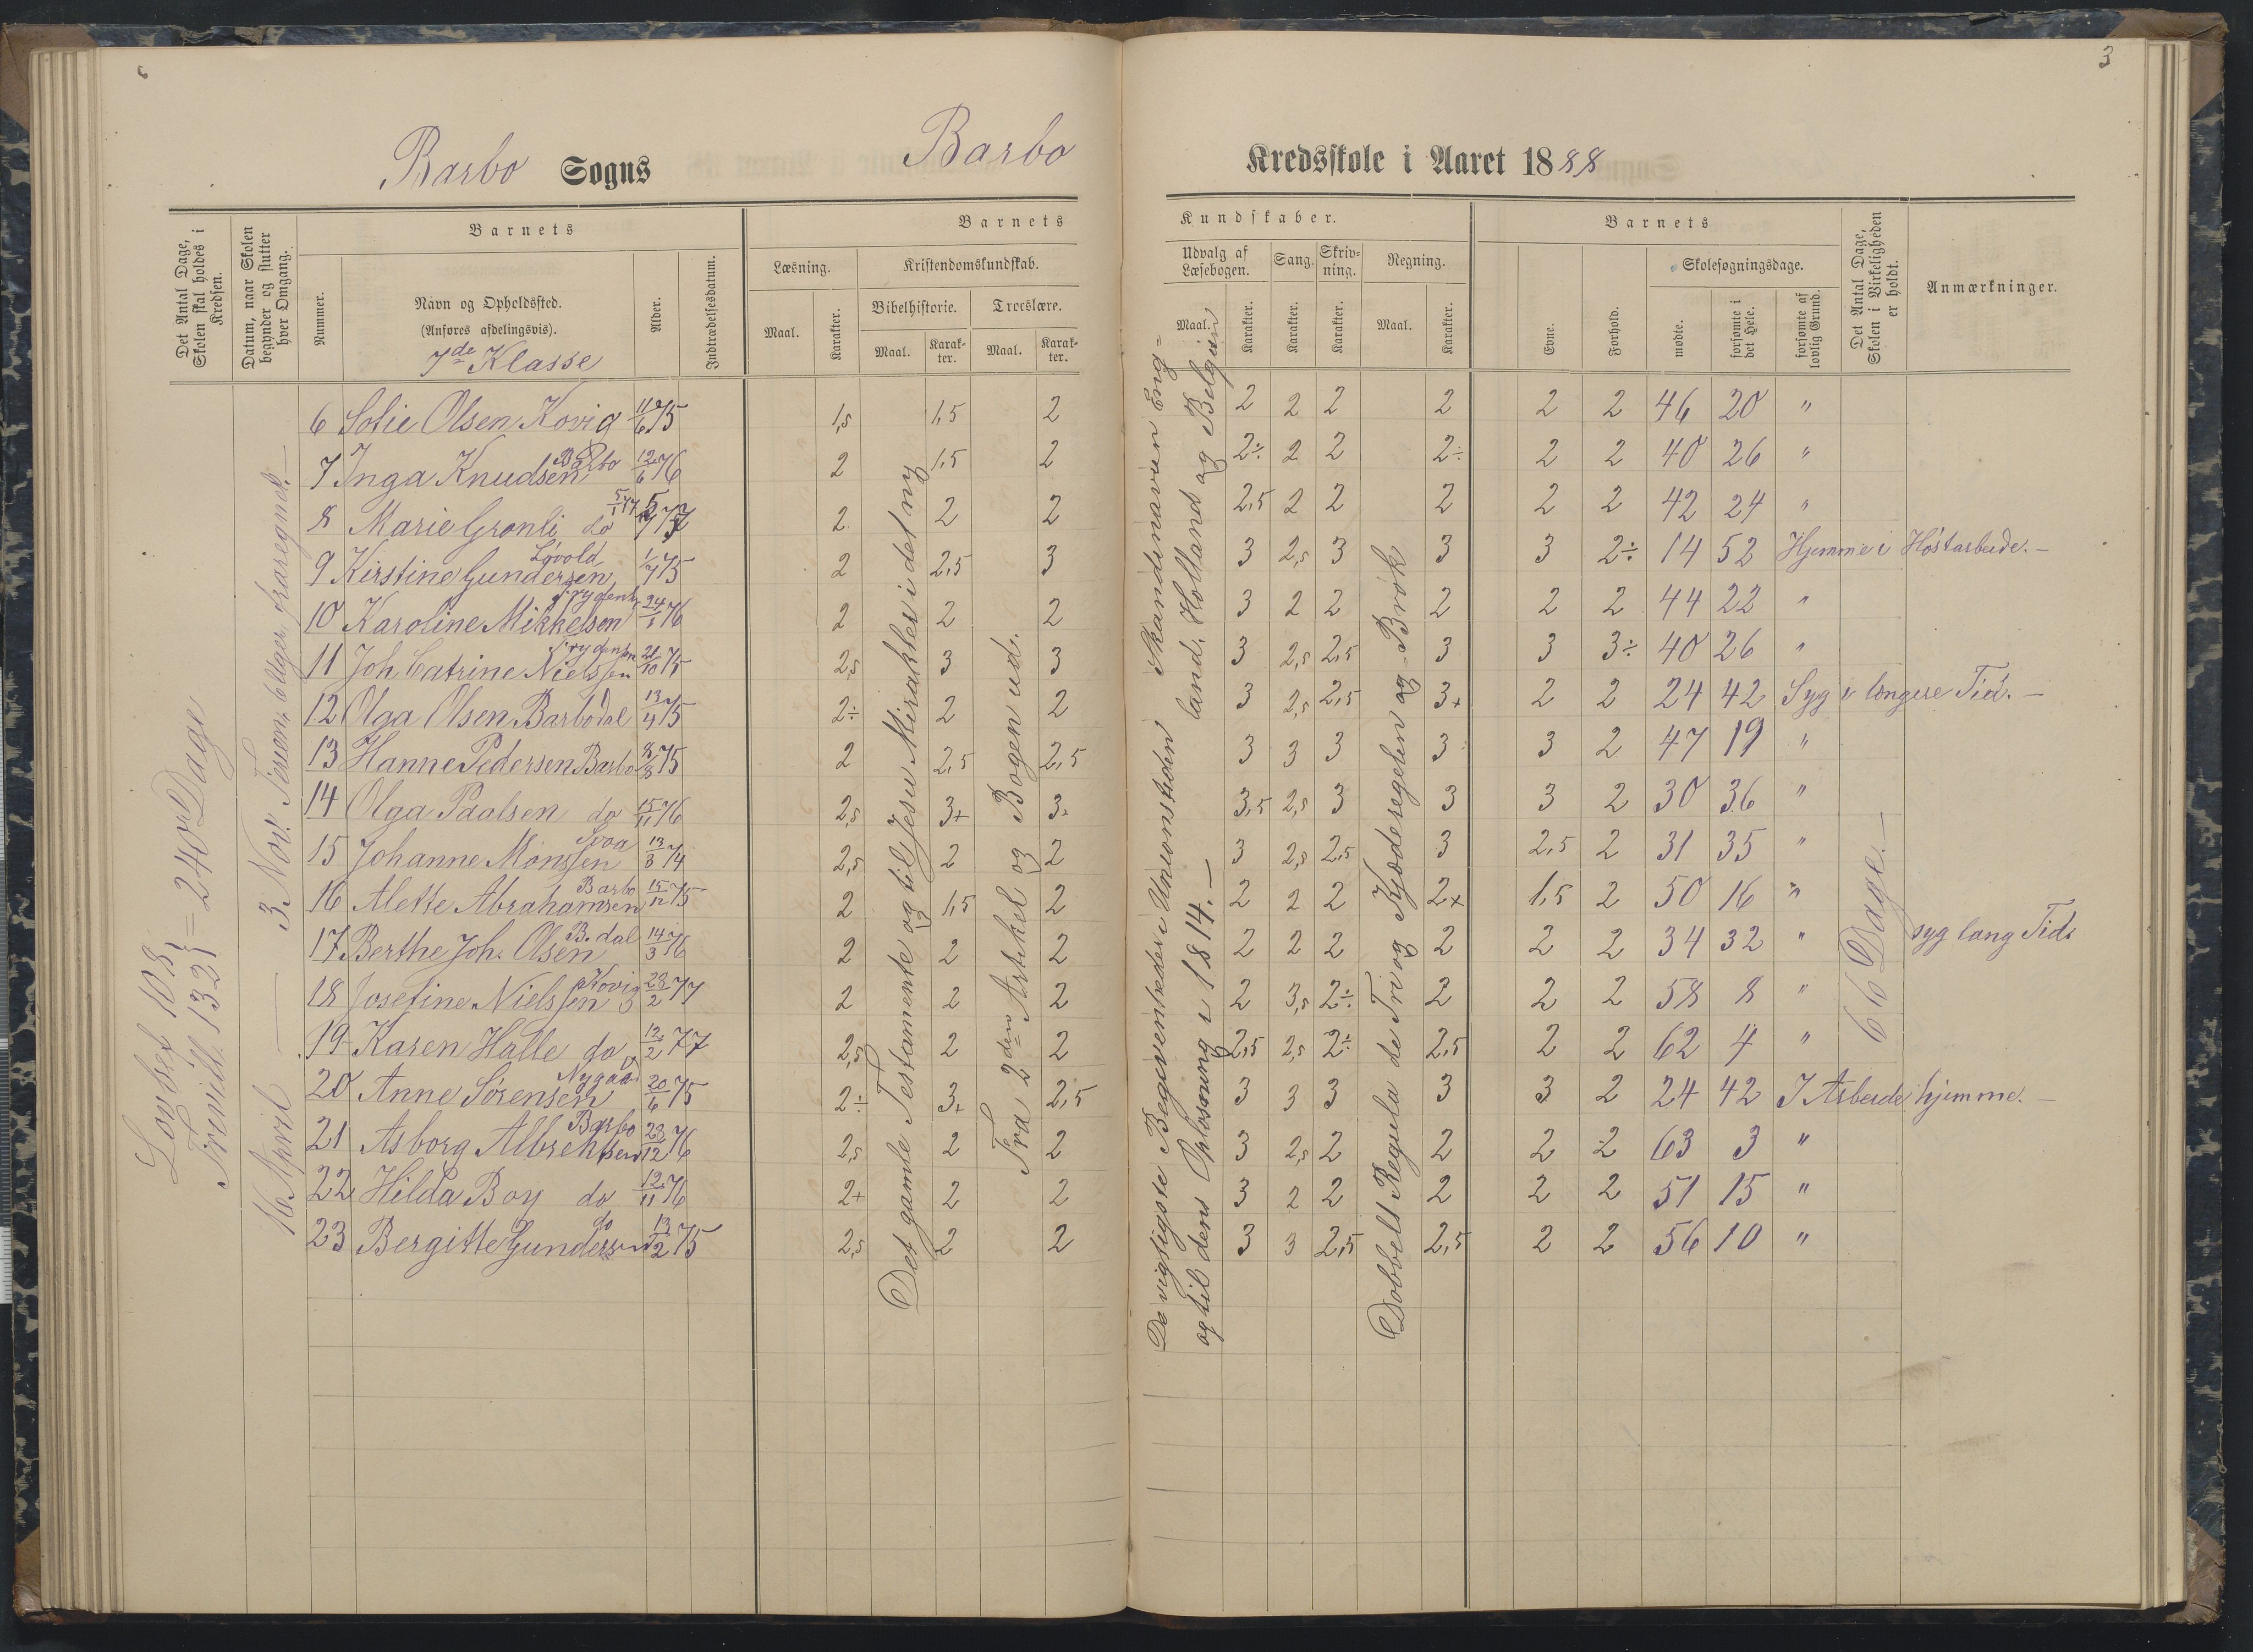 3
Barbo Sogns Barbo Kredsskole i Aaret 1888
Det Antal Dage, Skolen skal holdes i Kredsen.
Datum, naar Skolen begynder og slutter hver Omgang.
Barnets
Nummer.
Navn og Opholdssted.
(Anføres afdelingsvis).
7de Klasse
Alder.
Indtrædelsesdatum.
Barnets Kundskaber.
Læsning.
Maal.
Karakter.
Kristendomskundskab.
Bibelhistorie.
Maal.
Karakter.
Troeslære.
Maal.
Karakter.
Udvalg af Læsebogen.
Maal.
Karakter.
Sang.
Karakter.
Skrivning.
Karakter.
Regning.
Maal.
Karakter.
Barnets
Evne.
Forhold.
Skolesøgningsdage.
mødte.
forsømte i det Hele.
forsømte af lovlig Grund.
Det Antal Dage, Skolen i Virkeligheden er holdt.
Anmærkninger.
Lovbef 108
Frivill. 132 } = 240 Dage
16 April — 3 Novr. fraregnet. —
Det gamle Testamente og til Jesu Mirakler i det ny
Fra 2den Artikel og Bogen ud.
De vigtigste Begivenheder i Unionstiden
og til dens Opløsning i 1814. —
Skandinavien Eng=
land, Holland og Belgien
Dobbelt Regula de Tri og Kjæderegelen og Brøk
66 Dage. —
6 Sofie Olsen Kovig 11/6 75 1,5 1,5 2 2 2 2 2 2 2 46 20 "
7 Inga Knudsen Barbo 12/6 76 2 1,5 2 2÷ 2 2 2÷ 2 2 40 26 "
8 Marie Grønli do 2 2 2 2,5 2 2 2 2 2 42 24 "
9 Kirstine Gundersen Løvold 1/7 75 2 2,5 3 3 2,5 3 3 3 2÷ 14 52 Hjemme i Høstarbeide. —
10 Karoline Mikkelsen 24/1 76 2 2 2 3 2 2 2 2 2 44 22 "
11 Joh Catrine Nielssen 21/10 75 2,5 3 3 3 2,5 2,5 3 3 3÷ 40 26 "
12 Olga Olsen Barbodal 13/4 75 2÷ 2 2 3 2,5 2,5 3+ 2 2 24 42 Syg i længere Tid. —
13 Hanne Pedersen Barbo 8/8 75 2 2,5 2,5 3 3 3 3 3 2 47 19 "
14 Olga Paalsen do 15/11 76 2,5 3+ 3+ 3,5 2,5 3 3 3 2 30 36 "
15 Johanne Monssen 13/3 74 2,5 2 2 3 2,5 2,5 3 2,5 2 31 35 "
16 Alette Abrahamsen Barbo 15/12 75 2 1,5 2 2 2 2 2+ 1,5 2 50 16 "
17 Berthe Joh. Olsen B.dal 14/3 76 2 2 2 2 2 2 2 2 2 34 32 " syg lang Tid.
18 Josefine Nielssen Kovig 23/2 77 2 2 2 2 3,5 2÷ 2 2 2 58 8 "
19 Karen Halle do 12/2 77 2,5 2 2 2,5 2,5 2÷ 2,5 2 2 62 4 "
20 Anne Sørensen Nygaa 20/6 75 2÷ 3+ 2,5 3 3 3 3 3 2 24 42 I Arbeide hjemme. —
21 Asborg Albrektsen Barbo 23/12 76 2,5 2 2 3 2,5 2 2 2 2 63 3 "
22 Hilda Boy do 12/11 76 2+ 2 2 3 2 2 2 2 2 51 15 "
23 Bergitte Gundersen do 13/12 75 2,5 2 2 3 3 2,5 2,5 2 2 56 10 "